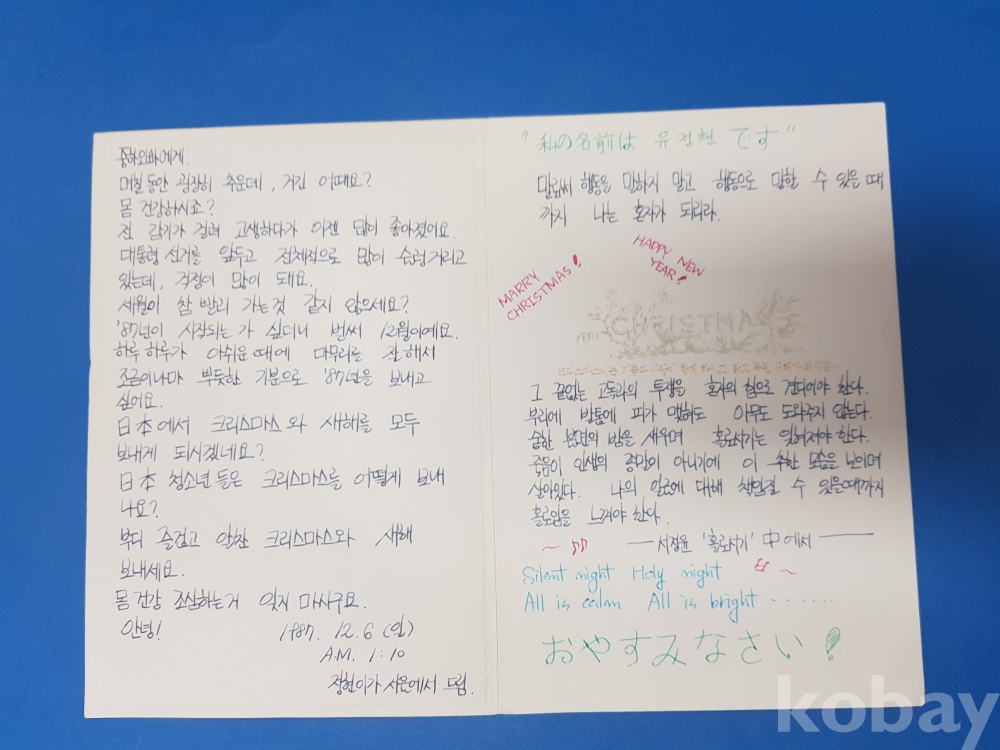 중하오빠에게.
며칠동안 굉장히 추운데, 거긴 어때요?
몸 건강하시죠?
전 감기가 걸려 고생하다가 이젠 많이 좋아졌어요.
대통령 선거를 앞두고 전체적으로 많이 술렁거리고
있는데, 걱정이 많이 돼요.
세월이 참 빨리 가는것 같지 않으세요?
'87년이 시작되는 가 싶더니 벌써 12월이예요.
하루 하루가 아쉬운 때에 마무리를 잘 해서
조금이나마 뿌듯한 기분으로 '87년을 보내고
싶어요.
日本에서 크리스마스와 새해를 모두
보내게 되시겠네요?
日本 청소년들은 크리스마스를 어떻게 보내
나요?
부디 즐겁고 알찬 크리스마스와 새해
보내세요.
몸 건강 조심하는거 잊지 마시구요.
안녕!
1987. 12. 6 (일)
A.M. 1:10
정현이가 서울에서 드림.
"私の名前は 유정현 です"
말로써 행동을 말하지 말고 행동으로 말할 수 있을 때
까지 나는 혼자가 되리라.
MARRY
CHRISTMAS!
HAPPY NEW
YEAR!
CHRISTMAS
그 끝없는 고독과의 투쟁을 혼자의 힘으로 견디어야 한다.
부리에 발톱에 피가 맺혀도 아무도 도와주지 않는다.
숱한 불면의 밤을 새우며 홀로서기는 있어져야한다.
죽음이 인생의 종말이 아니기에 이 추한 모습을 보이며
살아있다. 나의 얼굴에 대해 책임질 수 있을때까지
홀로임을 느껴야 한다.
— 서정윤 '홀로서기' 中에서 —
Silent night Holy night
All is calm All is bright ......
おやすみなさい!
kobay